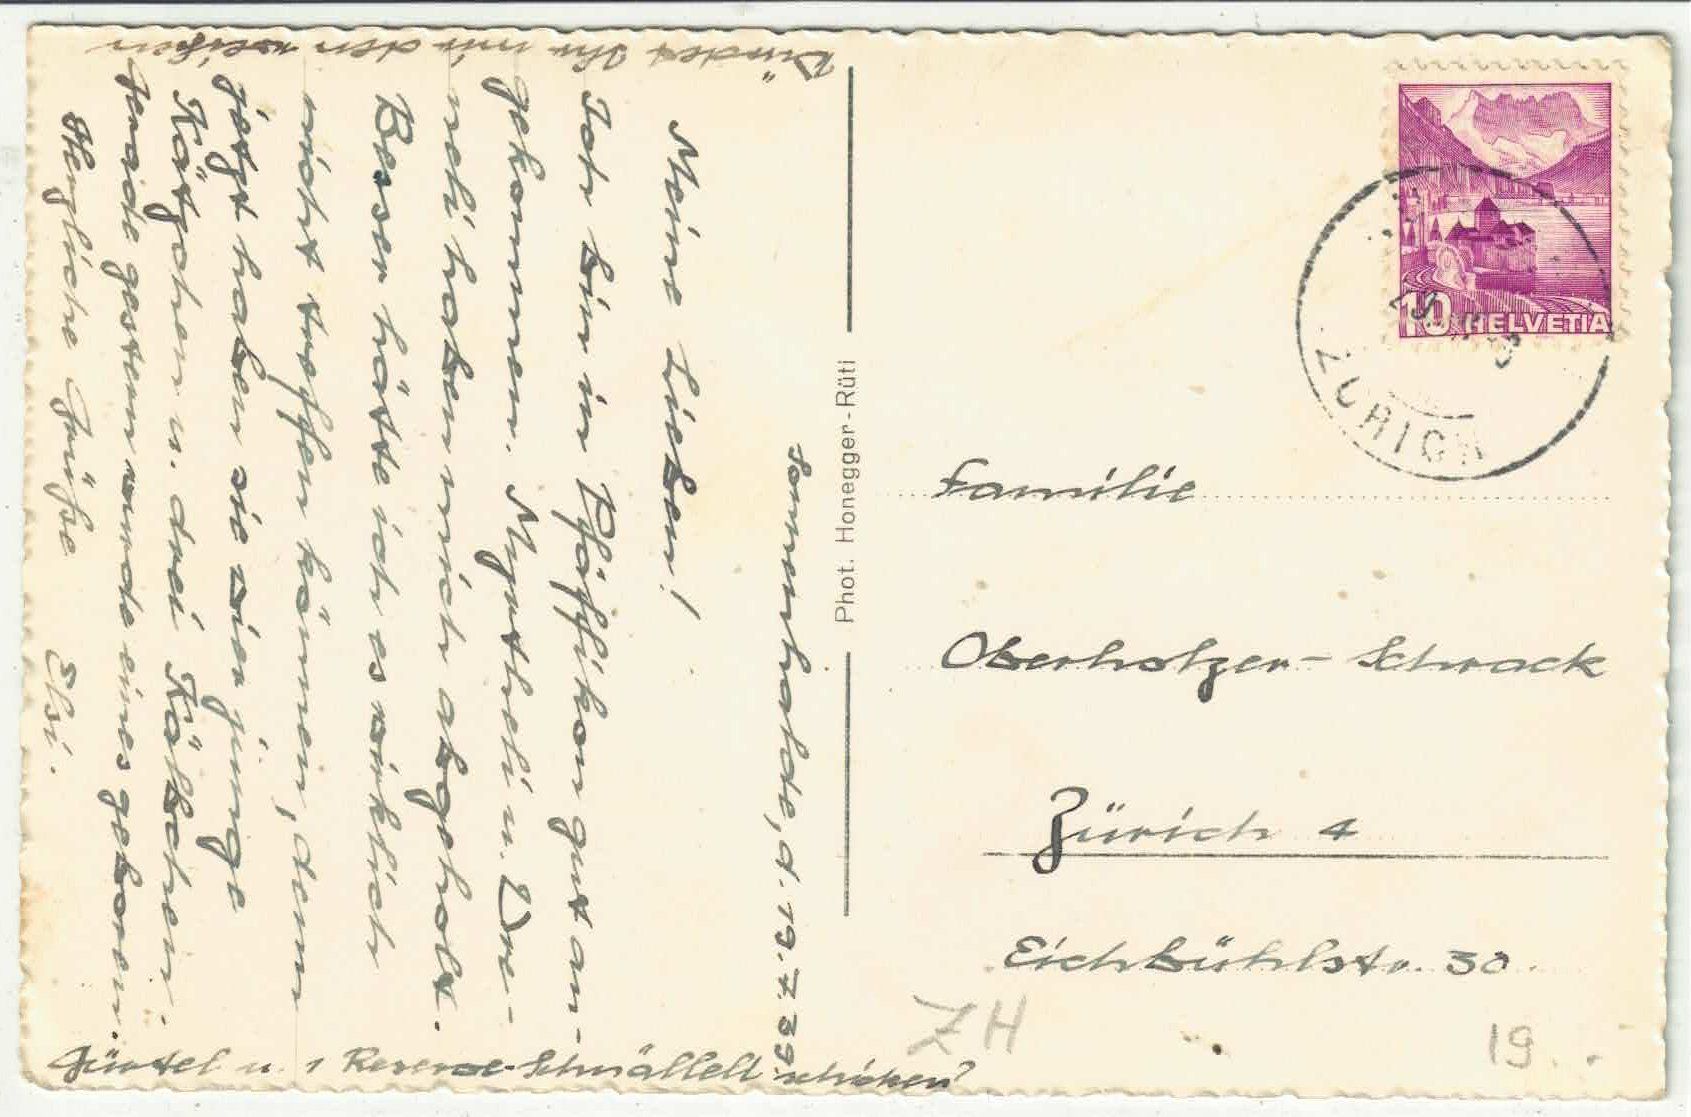 Sonnenhalde, d. 19.7.39.
Meine Lieben!
Ich bin in Pfäffikon gut an-
gekommen. Myrtheli u. Vre-
neli haben mich abgeholt.
Besser hätte ich es wirklich
nicht treffen können, denn
jetzt haben sie vier junge
Kätzchen u. drei Kälbchen.
Gerade gestern wurde eines geboren.
Herzliche Grüße Elsi.
Würdet Ihr mir den weißen
Gürtel u. 1 Reserve-Schnälleli schicken?
Phot. Honegger-Rüti
10 HELVETIA
ZÜRICH
Familie
Oberholzer-Schrack
Zürich 4
Eichbühlstr. 30
ZH
19